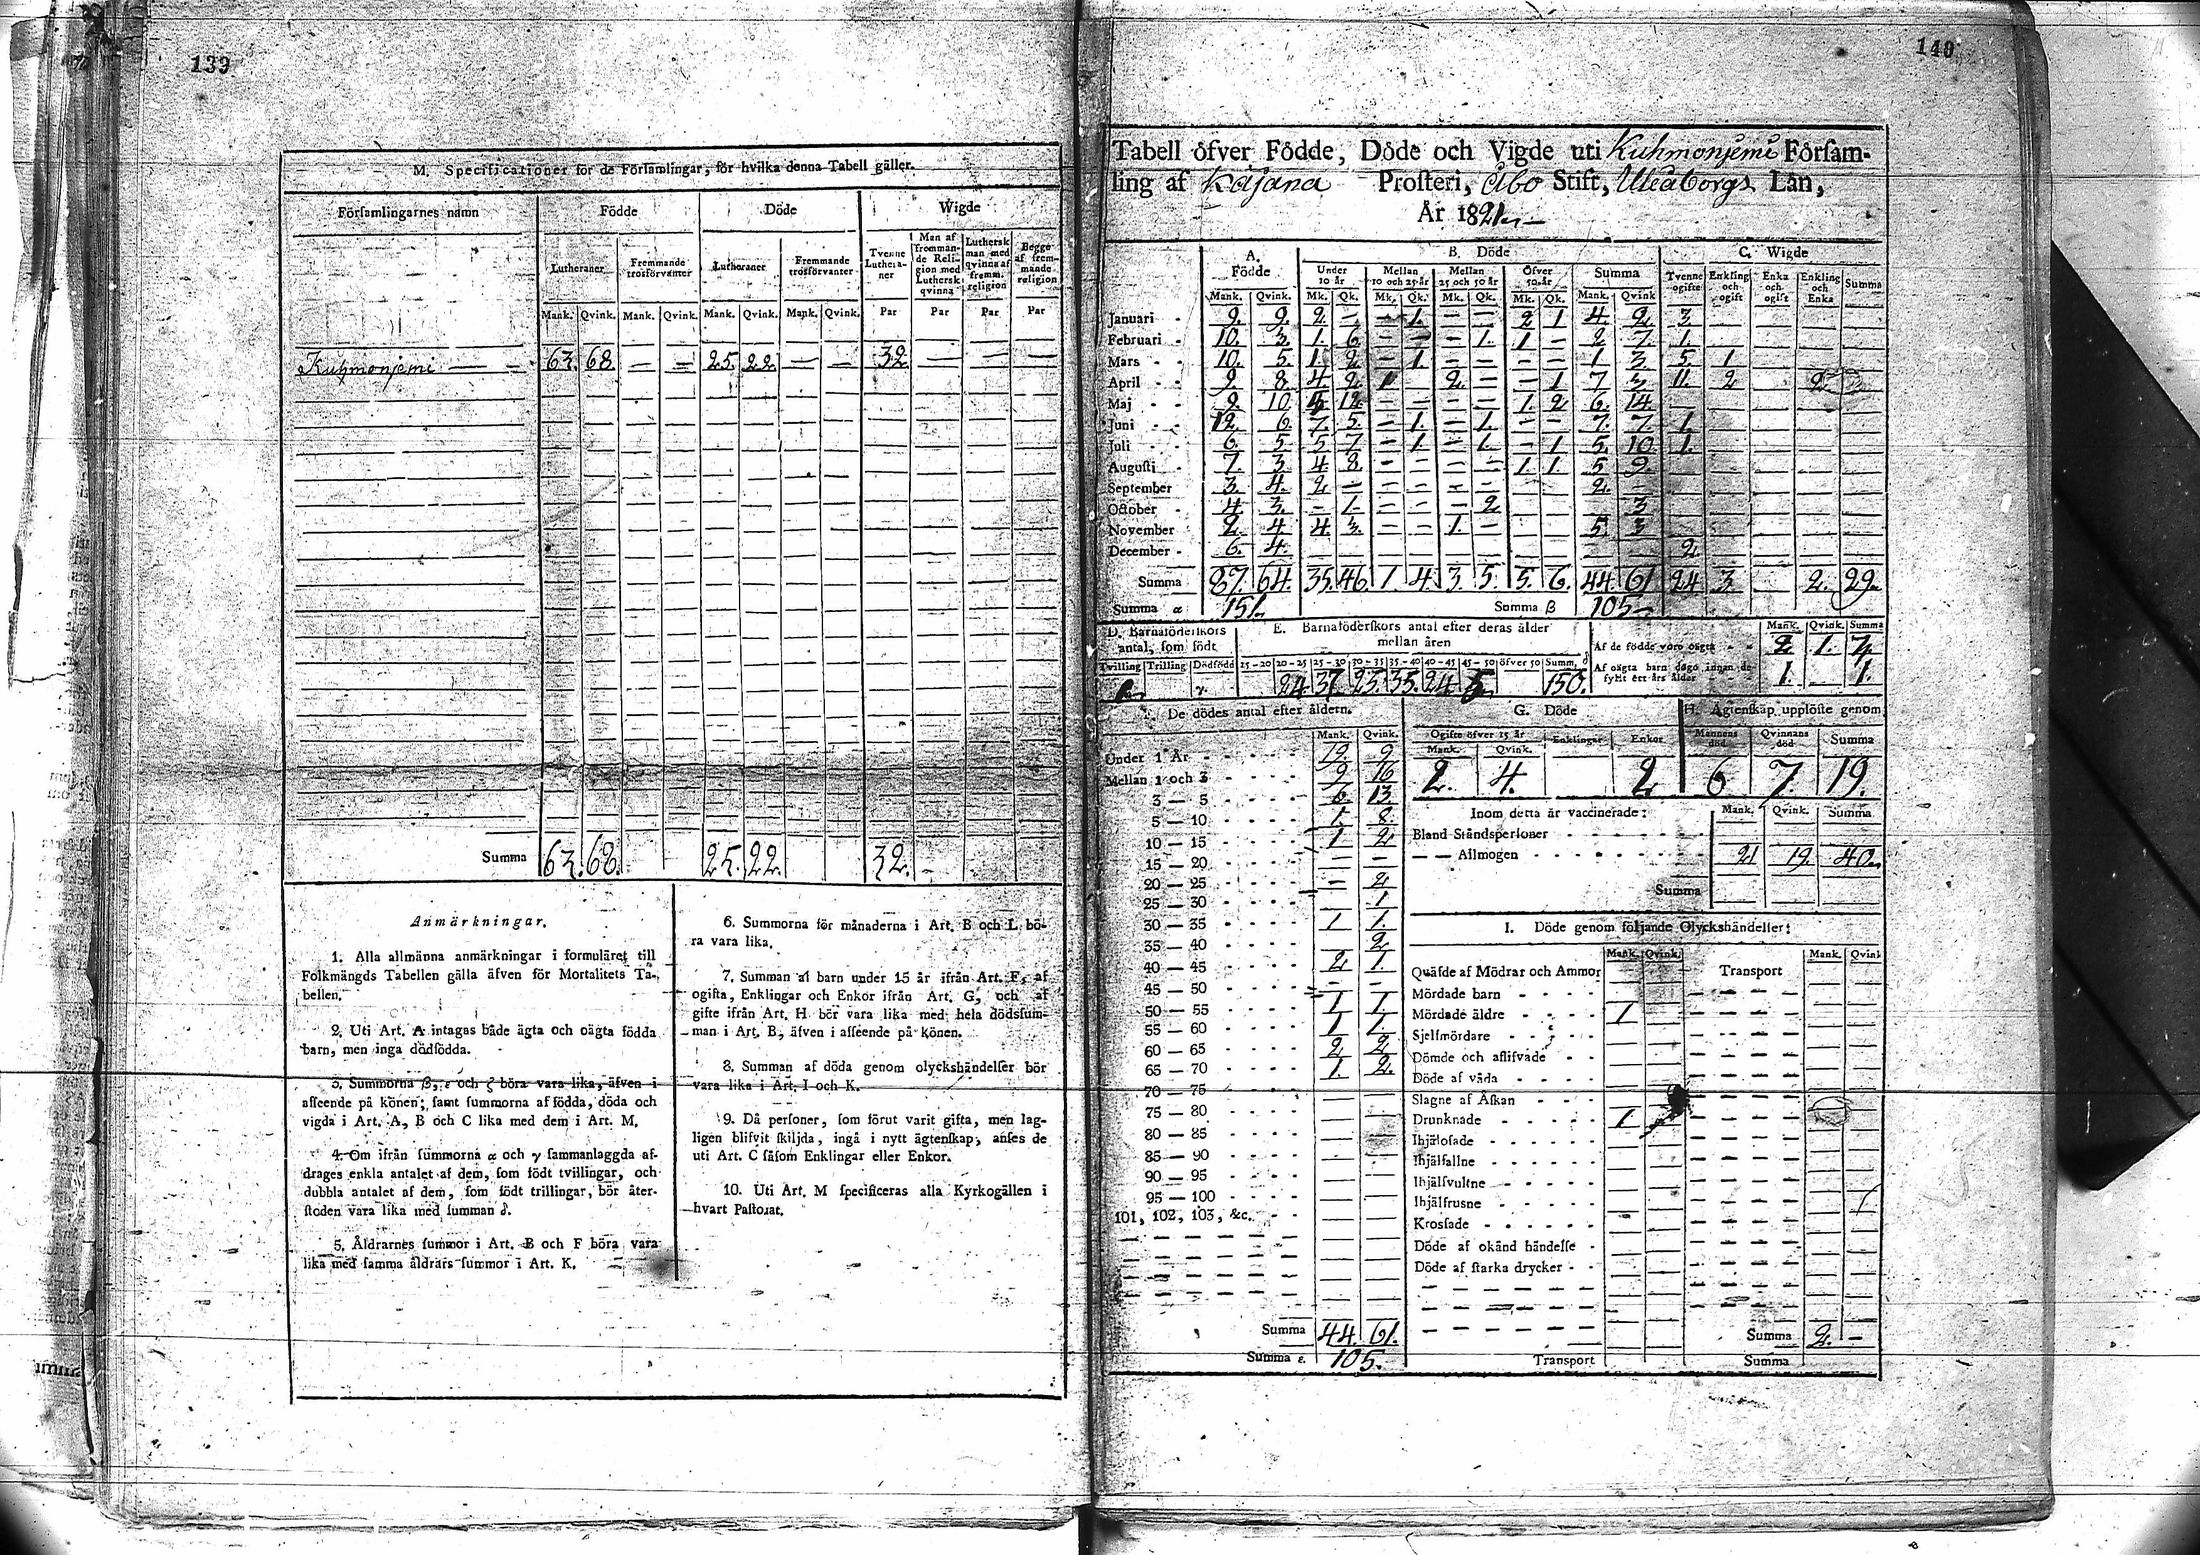 139
M. Specificationer för de Församlingar, för hvilka denna Tabell gäller.
Församlingarnes namn Födde Döde Wigde
Lutheraner Fremmande trosförvanter Lutheraner Fremmande trosförvanter Tvenne Lutheraner Man af fremmande Religion med Luthersk qvinna Luthersk man med qvinna af fremm. religion Begge af fremmande religion
Mank. Qvink. Mank. Qvink. Mank. Qvink. Mank. Qvink. Par Par Par Par
Kuhmonjemi 63. 68. — — 25. 22. — — 32. — — —
Summa 63. 68. 25. 22. 32. -
Anmärkningar.
1. Alla allmänna anmärkningar i formuläret till
Folkmängds Tabellen gälla äfven för Mortalitets Ta-
bellen.
2. Uti Art. A intagas både ägta och oägta födda
barn, men inga dödfödda.
3. Summorna β, ε och ζ böra vara lika, äfven i
afseende på könen; samt summorna af födda, döda och
vigda i Art. A, B och C lika med dem i Art. M.
4. Om ifrån summorna α och γ sammanlaggda af-
drages enkla antalet af dem, som födt tvillingar, och
dubbla antalet af dem, som födt trillingar, bör åter-
stoden vara lika med summan δ.
5. Åldrarnes summor i Art. B och F böra vara
lika med samma åldrars summor i Art. K.
6. Summorna för månaderna i Art. B och L bö-
ra vara lika.
7. Summan af barn under 15 år ifrån Art. F, af
ogifta, Enklingar och Enkor ifrån Art. G, och af
gifte ifrån Art. H bör vara lika med hela dödssum-
man i Art. B, äfven i afseende på könen.
8. Summan af döda genom olyckshändelser bör
vara lika i Art. I och K.
9. Då personer, som förut varit gifta, men lag-
ligen blifvit skiljda, ingå i nytt ägtenskap, anses de
uti Art. C såsom Enklingar eller Enkor.
10. Uti Art. M specificeras alla Kyrkogällen i
hvart Pastorat.
140
Tabell öfver Födde, Döde och Vigde uti Kuhmonjemi Försam-
ling af Kajana Prosteri, Åbo Stift, Uleåborgs Län,
År 1821.
A. Födde B. Döde C. Wigde
Under 10 år Mellan 10 och 25 år Mellan 25 och 50 år Öfver 50 år Summa Tvenne ogifte Enkling och ogift Enka och ogift Enkling och Enka Summa
Mank. Qvink. Mk. Qk. Mk. Qk. Mk. Qk. Mk. Qk. Mank. Qvink
Januari 9. 9. 2. — — 1. — — 2 1 4 2. 3.
Februari 10. 3. 1. 6 — — — 1. 1 — 2 7. 1.
Mars 10. 5. 1. 2 — 1. — — — — 1 3. 5. 1
April 9. 8. 4. 2. 1 — 2. — — 1 7 3. 11. 2 2
Maj 9. 10. 5 12. — — — — 1. 2 6. 14.
Juni 12. 6. 7. 5. — 1. — 1. — — 7. 7. 1.
Juli 6. 5 5 7 — 1. — 1. — 1 5. 10. 1.
Augusti 7. 3. 4 8. — — — — 1. 1. 5 9.
September 3. 4. 2 — — — — — 2. —
October 4 3. — 1. — — — 2 3
November 2. 4 4. 3. — — 1. — 5. 3
December 6. 4. 2.
Summa 87. 64. 35. 46. 1. 4. 3. 5. 5. 6. 44. 61. 24. 3. — 2. 29.
Summa α 151. Summa β 105
D. Barnaföderskors antal, som födt
Tvilling Trilling Dödfödd
γ.
E. Barnaföderskors antal efter deras ålder mellan åren
15-20 20-25 25-30 30-35 35-40 40-45 45-50 öfver 50 Summ. δ
24. 37. 25. 35. 24. 5. 150.
Mank. Qvink. Summa
Af de födde voro oägta 2. 1.
Af oägta barn dogo innan de fyllt ett års ålder 1. — 1.
F. De dödes antal efter åldern.
Mank. Qvink.
Under 1 År 9
Mellan 1 och 3 9 16
3 — 5 6. 13.
5 — 10 1. 8.
10 — 15 1 2
15 — 20 — —
20 — 25 — 2
25 — 30 1
30 — 35 1 1.
35 — 40 2.
40 — 45 2 1.
45 — 50 — —
50 — 55 1 1.
55 — 60 1 1.
60 — 65 2 2.
65 — 70 1. 2.
70 — 75
75 — 80
80 — 85
85 — 90
90 — 95
95 — 100
101, 102, 103, &c.
Summa 44. 61.
Summa ε. 105.
G. Döde
Ogifte öfver 15 år Enklingar Enkor
Mank. Qvink.
2. 4. 2
H. Ägtenskap upplöste genom
Mannens död Qvinnans död Summa
6 7.
Inom detta år vaccinerade: Mank. Qvink. Summa
Bland Ståndspersoner
— — Allmogen 21 19. 40.
Summa
I. Döde genom följande Olyckshändelser:
Mank. Qvink. Mank. Qvink
Quäfde af Mödrar och Ammor Transport
Mördade barn
Mördade äldre 1
Sjelfmördare
Dömde och aflifvade
Döde af våda
Slagne af Åskan
Drunknade 1
Ihjälosade
Ihjälfallne
Ihjälsvultne
Ihjälfrusne
Krossade
Döde af okänd händelse
Döde af starka drycker
Summa 2. —
Transport Summa